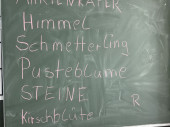 MARIENKÄFER
Himmel
Schmetterling
Pusteblume
STEINE
R
Kirschblüte!